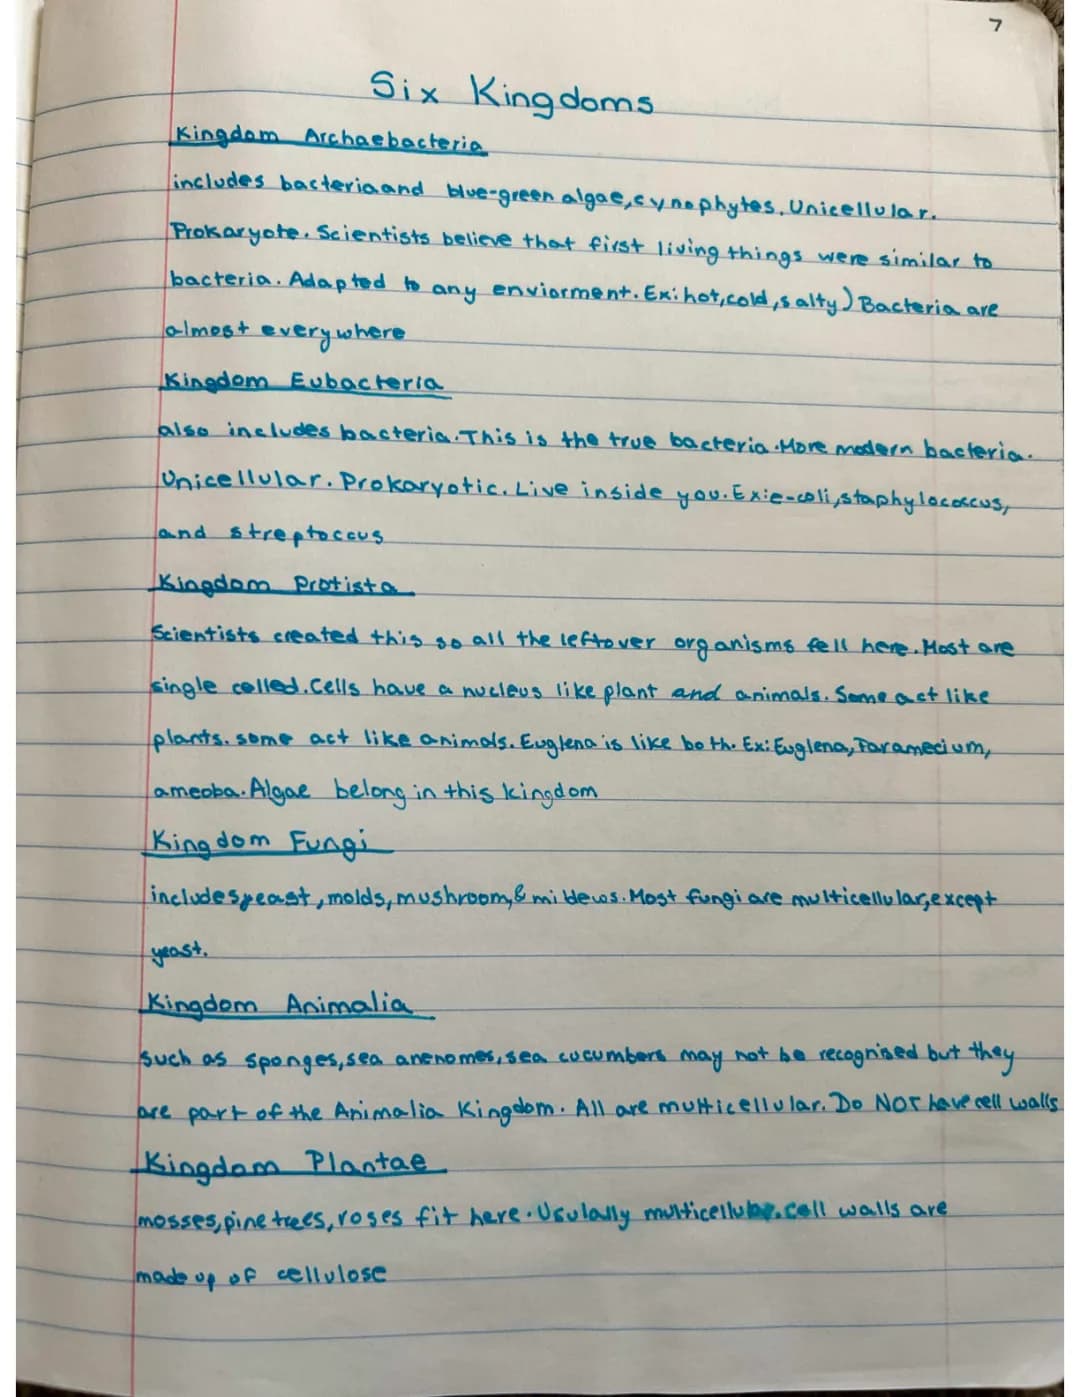 7
Six Kingdoms
Kingdom Archaebacteria
includes bacteria and blue-green algae, cynophytes. Unicellular.
Prokaryote. Scientists believe that first living things were similar to
bacteria. Adapted to any enviorment. Ex: hot, cold, salty) Bacteria are
almost everywhere
Kingdom Eubacteria
also includes bacteria. This is the true bacteria. More modern bacteria.
Unicellular. Prokaryotic. Live inside you. Ex: e-coli, staphylococcus,
and streptoccus
Kingdom Protista
Scientists created this so all the leftover organisms fell here. Most are
single celled. Cells have a nucleus like plant and animals. Some act like
plants. some act like animals. Euglena is like both. Ex: Euglena, Paramecium,
ameoba. Algae belong in this kingdom
Kingdom Fungi
includes yeast, molds, mushroom, & mildews. Most fungi are multicellular, except
yeast.
Kingdom Animalia
such as sponges, sea anenomes, sea cucumbers may not be recognised but they
are part of the Animalia Kingdom. All are multicellular. Do NOT have cell walls
Kingdom Plantae
mosses, pine trees, roses fit here. Usulally multicellular. cell walls are
made up of cellulose